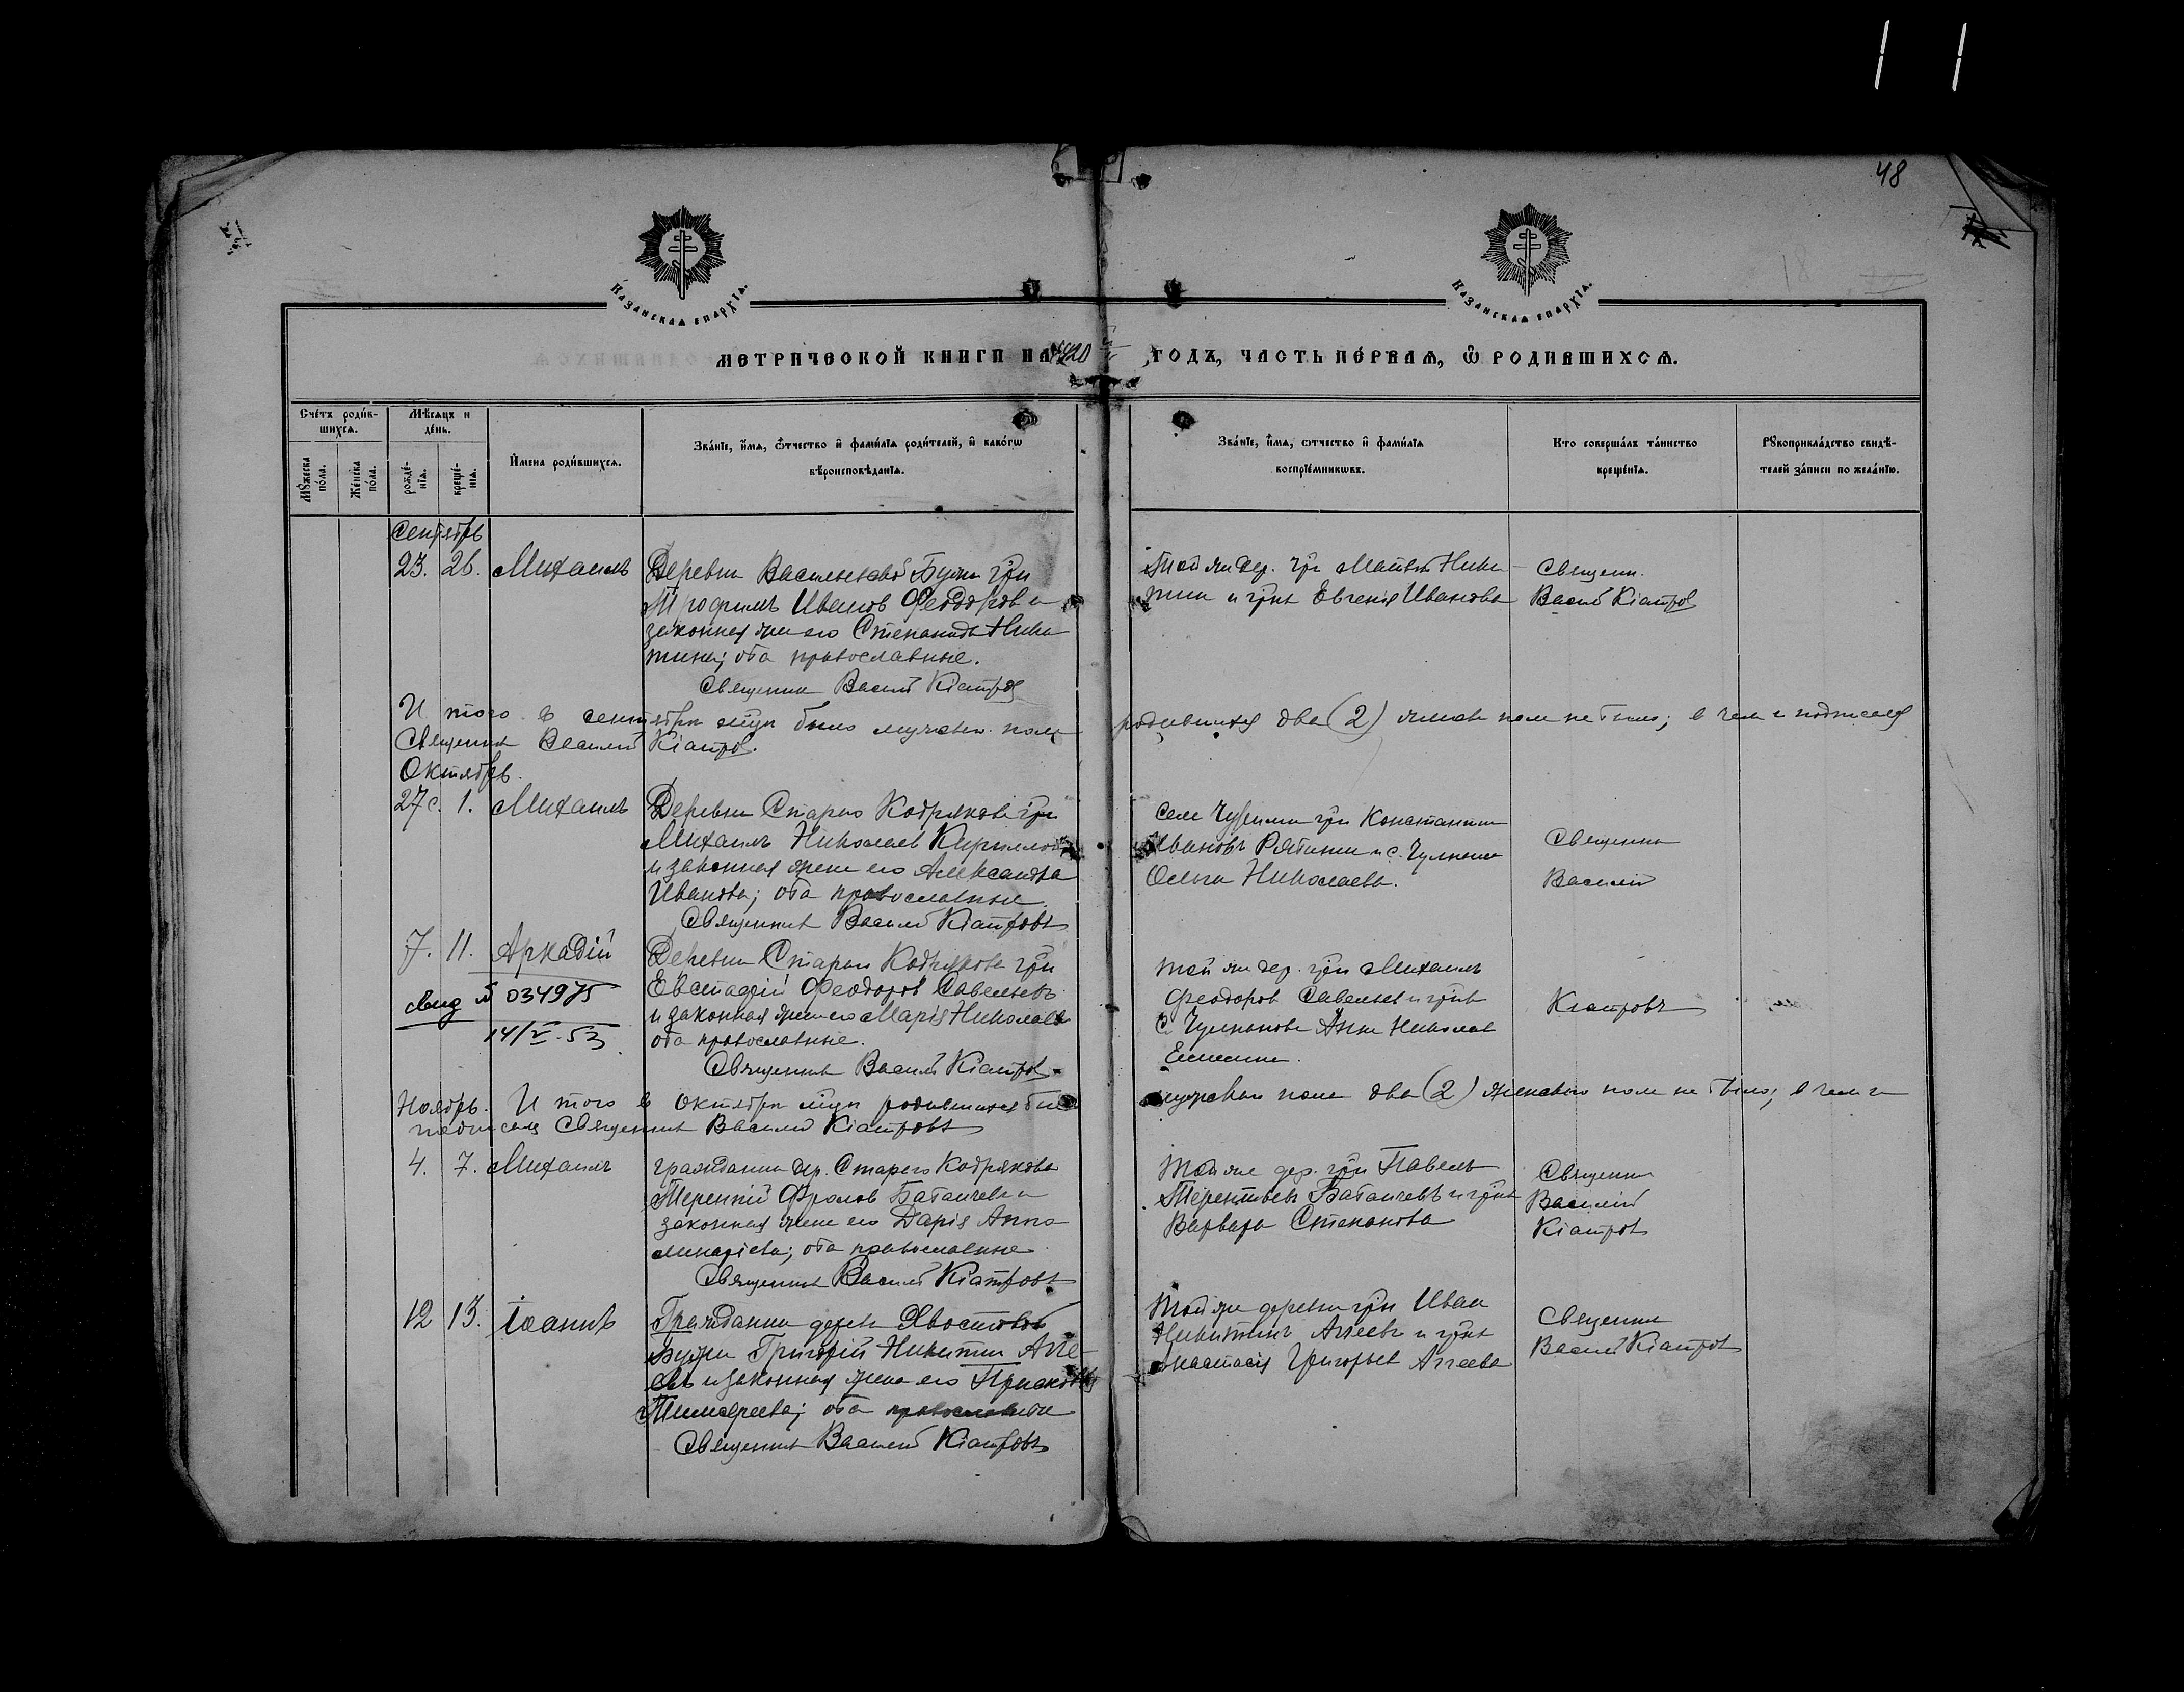 48
Казанская епархїа.
Казанская епархїа.
Метрической книги на 1920 годъ, часть первая, ѡ родившихся.
Счетъ родив-
шихся.
Мѣсяцъ и
день.
Мужеска
пола.
Женска
пола.
рожде-
нїя.
креще-
нїя.
Имена родившихся.
Званїе, имя, ѿчество и фамилїя родителей, и какогѡ
вѣроисповѣданїя.
Званїе, имя, ѿчество и фамилїя
воспрїемникѡвъ.
Кто совершалъ таинство
крещенїя.
Рукоприкладство свидѣ-
телей записи по желанїю.
Сентябрь
23. 26. Михаилъ
Деревни Буди гр͠н
Трофимъ Иванов Феодоров и
законная жена его Степанида Ники
тина; оба православные.
Священник Василий Кіатров
Той же дер. гр͠н Матвей Ники
тин и гр͠нка Евгенія Иванова
Священ.
Василий Кіатров
И того в сентябре м͠це было мужеска пола родившихся два (2) женска пола не было; в чем и подписуюсь
Священник Василий Кіатров.
Октябрь.
27 с. 1. Михаилъ
Деревни Старого Кадрякова гр͠н
Михаилъ Николаев Кириллов
и законная жена его Александра
Иванова; оба православные
Священник Василий Кіатровъ
села гр͠н Константин
Ивановъ и с.
Ольга Николаева.
Священник
Василий
7. 11. Аркадій
Деревни Старого Кадрякова гр͠н
Евстафій Феодоров Савельевъ
и законная жена его Марія Николаева
оба православные.
Священник Василий Кіатров
Той же дер. гр͠н Михаилъ
Феодоров Савельев и гр͠нка
с. Анна Николаева
Кіатровъ
Свид № 034975
14/V-53
Ноябрь. И того в октябре м͠це родившихся было мужеска пола два (2) женска пола не было; в чем и
подписуюсь Священник Василий Кіатровъ
4. 7. Михаилъ
Гражданин дер. Старого Кадрякова
Терентій Фролов Батанчев и
законная жена его Дарія Аппо-
линаріева; оба православные
Священник Василий Кіатровъ
Той же дер. гр͠н Павелъ
Терентьевъ Батанчевъ и гр͠нка
Варвара Степанова
Священник
Василій
Кіатров
12 13. Іоаннъ
Гражданин деревни Хвостовой
Буди Григорій Никитин Агге-
евъ и законная жена его Прасковья
Тимофеева; оба православные
Священник Василий Кіатровъ
Той же деревни гр͠н Иван
Никитинъ Аггеевъ и гр͠нка
Анастасія Григорьев Аггеева
Священник
Василий Кіатров